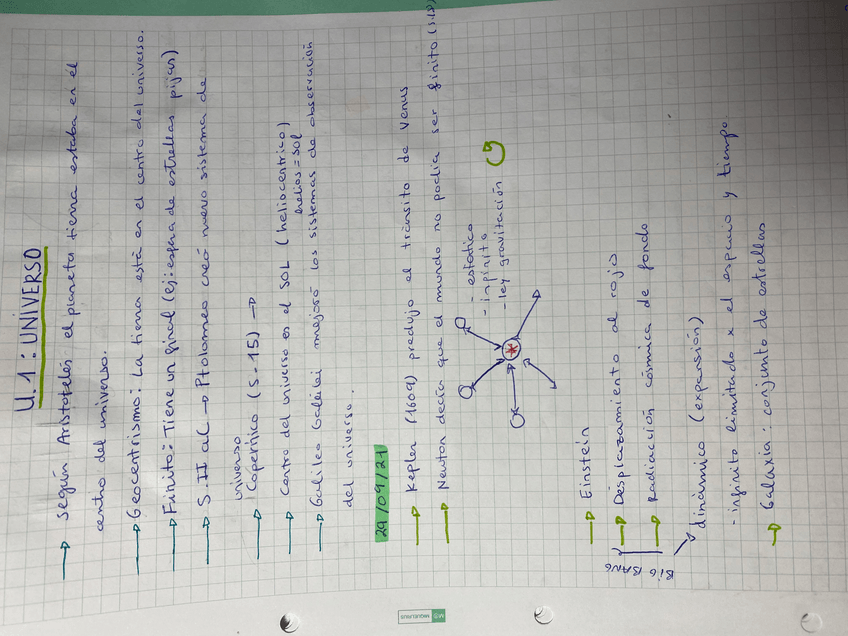 U.1: UNIVERSO
→ según Aristoteles el planeta tierra estaba en el
centro del universo.
→ Geocentrismo: La tierra está en el centro del universo.
→ Finito: Tiene un final (ej: esfera de estrellas fijas)
→ S. II aC → Ptolomeo creó nuevo sistema de
universo
→ Copérnico (S-15) →
→ Centro del universo es el SOL (heliocentrico)
helios = SOL
→ Galileo Galilei mejoró los sistemas de observación
del universo.
29/09/21
→ Kepler (1609) predujo el tránsito de Venus
→ Newton decía que el mundo no podía ser finito (S.18)
- estático
- infinito
- ley gravitación
→ Einstein
→ Desplazamiento al rojo
→ Radiacción cósmica de fondo
BIG BANG
→ dinámico (expansión)
- infinito limitado x el espacio y tiempo
→ Galaxia: conjunto de estrellas
MIQUELRIUS